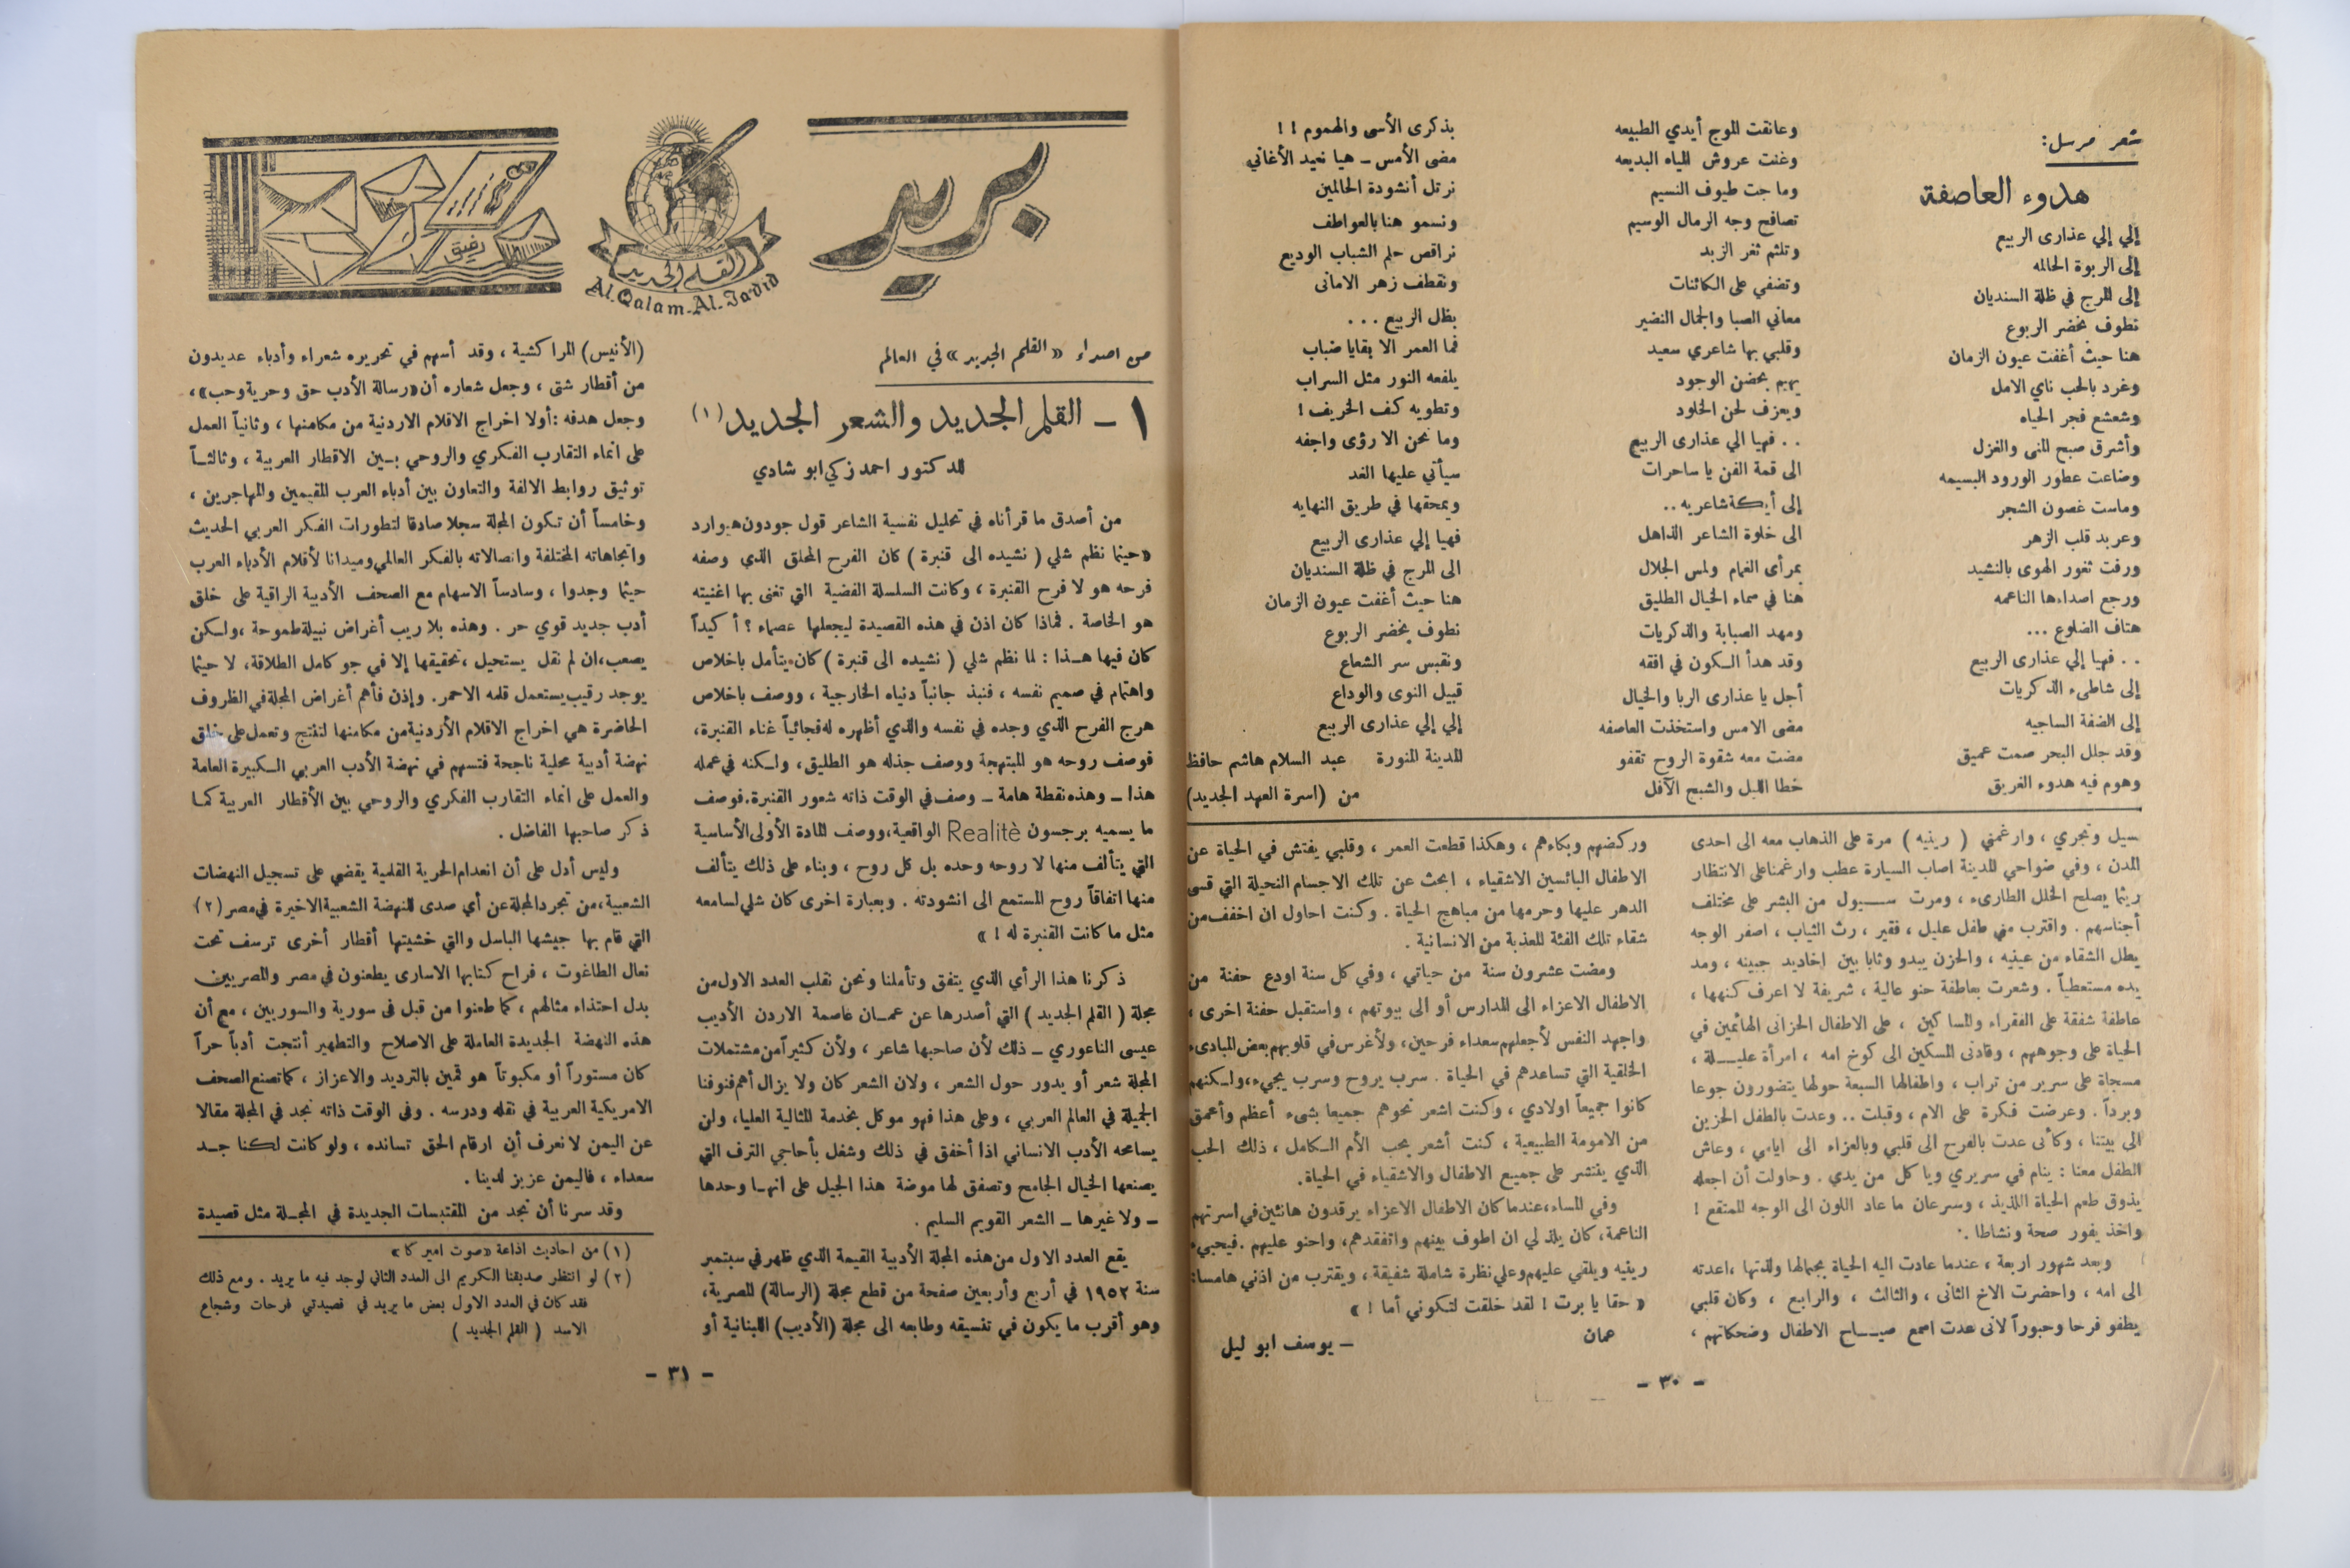 شعر مرسل:
هدوء العاصفة
إلي إلي عذارى الربيع
إلى الربوة الحالمه
إلى المرج في ظلة السنديان
نطوف بخضر الربوع
هنا حيث أغفت عيون الزمان
وغرد بالحب ناي الامل
وشعشع فجر الحياه
وأشرق صبح المنى والغزل
وضاعت عطور الورود البسيمه
وماست غصون الشجر
وعربد قلب الزهر
ورفت ثغور الهوى بالنشيد
ورجع اصداءها الناعمه
هتاف الضلوع ...
. . فهيا إلي عذارى الربيع
إلى شاطىء الذكريات
إلى الضفة الساجيه
وقد جلل البحر صمت عميق
وهوم فيه هدوء الغريق
وعانقت الموج أيدي الطبيعه
وغنت عروش المياه البديعه
وماجت طيوف النسيم
تصافح وجه الرمال الوسيم
وتلثم ثغر الزبد
وتضفي على الكائنات
معاني الصبا والجمال النضير
وقلبي بها شاعري سعيد
يهيم بحضن الوجود
ويعزف لحن الخلود
. . فهيا الي عذارى الربيع
الى قمة الفن يا ساحرات
إلى أيكة شاعريه ..
الى خلوة الشاعر الذاهل
بمرأى الغمام ولمس الجلال
هنا في سماء الخيال الطليق
ومهد الصبابة والذكريات
وقد هدأ السكون في افقه
أجل يا عذارى الربا والخيال
مضى الامس واستخذت العاصفه
مضت معه شقوة الروح تقفو
خطا الليل والشبح الآفل
بذكرى الأسى والهموم ! !
مضى الأمس ــ هيا نعيد الأغاني
نرتل أنشودة الحالمين
ونسمو هنا بالعواطف
نراقص حلم الشباب الوديع
ونقطف زهر الامانى
بظل الربيع . . .
فما العمر الا بقايا ضباب
يلفعه النور مثل السراب
وتطويه كف الخريف !
وما نحن الا رؤى واجفه
سيأتي عليها الغد
ويمحقها في طريق النهايه
فهيا إلي عذارى الربيع
الى المرج في ظلة السنديان
هنا حيث أغفت عيون الزمان
نطوف بخضر الربوع
ونقبس سر الشعاع
قبيل النوى والوداع
إلي إلي عذارى الربيع
المدينة المنورة عبد السلام هاشم حافظ
من (اسرة العهد الجديد)
سيل وتجري ، وارغمني ( رينيه ) مرة على الذهاب معه الى احدى
المدن ، وفي ضواحي المدينة اصاب السيارة عطب وارغمنا على الانتظار
ريثما يصلح الخلل الطارىء ، ومرت سيول من البشر على مختلف
أجناسهم . واقترب مني طفل عليل ، فقير ، رث الثياب ، اصفر الوجه
يطل الشقاء من عينيه ، والحزن يبدو وثابا بين اخاديد جبينه ، ومد
يده مستعطياً . وشعرت بعاطفة حنو عالية ، شريفة لا اعرف كنهها ،
عاطفة شفقة على الفقراء والمساكين ، على الاطفال الحزانى الهائمين في
الحياة على وجوههم ، وقادنى المسكين الى كوخ امه ، امرأة عليلة ،
مسجاة على سرير من تراب ، واطفالها السبعة حولها يتضورون جوعا
وبرداً . وعرضت فكرة على الام ، وقبلت .. وعدت بالطفل الحزين
الى بيتنا ، وكأنى عدت بالفرح الى قلبي وبالعزاء الى ايامي ، وعاش
الطفل معنا : ينام في سريري وياكل من يدي . وحاولت أن اجعله
يذوق طعم الحياة اللذيذ ، وسرعان ما عاد اللون الى الوجه الممتقع !
واخذ يفور صحة ونشاطا .
وبعد شهور اربعة ، عندما عادت اليه الحياة بجمالها ولذتها ، اعدته
الى امه ، واحضرت الاخ الثانى ، والثالث ، والرابع ، وكان قلبي
يطفو فرحا وحبوراً لانى عدت اسمع صياح الاطفال وضحكاتهم ،
وركضهم وبكاءهم ، وهكذا قطعت العمر ، وقلبي يفتش في الحياة عن
الاطفال البائسين الاشقياء ، ابحث عن تلك الاجسام النحيلة التي قسى
الدهر عليها وحرمها من مباهج الحياة . وكنت احاول ان اخفف من
شقاء تلك الفئة المعذبة من الانسانية .
ومضت عشرون سنة من حياتي ، وفي كل سنة اودع حفنة من
الاطفال الاعزاء الى المدارس أو الى بيوتهم ، واستقبل حفنة اخرى ،
واجهد النفس لأجعلهم سعداء فرحين ، ولأغرس في قلوبهم بعض المبادىء
الخلقية التي تساعدهم في الحياة . سرب يروح وسرب يجيء ، ولكنهم
كانوا جميعاً اولادي ، وكنت اشعر نحوهم جميعا بشىء أعظم وأعمق
من الامومة الطبيعية ، كنت أشعر بحب الأم الكامل ، ذلك الحب
الذي ينتشر على جميع الاطفال والاشقياء في الحياة.
وفي المساء ، عندما كان الاطفال الاعزاء يرقدون هانئين في اسرتهم
الناعمة ، كان يلذ لي ان اطوف بينهم واتفقدهم ، واحنو عليهم . فيجيىء
رينيه ويلقي عليهم وعلي نظرة شاملة شفيقة ، ويقترب من اذني هامسا :
« حقا يا برت ! لقد خلقت لتكوني أما ! »
عمان
ــ يوسف ابو ليل
- ٣٠ -
بريد
القلم الجديد
Al.Qalam-Al.Jadid
رفيق
من اصداء « القلم الجديد » في العالم
١ - القلم الجديد والشعر الجديد (١)
للدكتور احمد زكي ابو شادي
من أصدق ما قرأناه في تحليل نفسية الشاعر قول جودون هيوارد
« حينما نظم شلي ( نشيده الى قنبرة ) كان الفرح المحلق الذي وصفه
فرحه هو لا فرح القنبرة ، وكانت السلسلة الفضية التي تغنى بها اغنيته
هو الخاصة . فماذا كان اذن في هذه القصيدة ليجعلها عصماء ؟ أكيداً
كان فيها هذا : لما نظم شلي ( نشيده الى قنبرة ) كان يتأمل باخلاص
واهتمام في صميم نفسه ، فنبذ جانباً دنياه الخارجية ، ووصف باخلاص
هرج الفرح الذي وجده في نفسه والذي أظهره له فجائياً غناء القنبرة ،
فوصف روحه هو المبتهجة ووصف جذله هو الطليق ، ولكنه في عمله
هذا ــ وهذه نقطة هامة ــ وصف في الوقت ذاته شعور القنبرة . فوصف
ما يسميه برجسون Realitè الواقعية ، ووصف المادة الأولى الأساسية
التي يتألف منها لا روحه وحده بل كل روح ، وبناء على ذلك يتألف
منها اتفاقاً روح المستمع الى انشودته . وبعبارة اخرى كان شلي لسامعه
مثل ما كانت القنبرة له ! »
ذكرنا هذا الرأي الذي يتفق وتأملنا ونحن نقلب العدد الاول من
مجلة ( القلم الجديد ) التي أصدرها عن عمان عاصمة الاردن الأديب
عيسى الناعوري ــ ذلك لأن صاحبها شاعر ، ولأن كثيراً من مشتملات
المجلة شعر أو يدور حول الشعر ، ولان الشعر كان ولا يزال أهم فنوننا
الجميلة في العالم العربي ، وعلى هذا فهو موكل بخدمة المثالية العليا ، ولن
يسامحه الأدب الانساني اذا أخفق في ذلك وشغل بأحاجي الترف التي
يصنعها الخيال الجامح وتصفق لها موضة هذا الجيل على انها وحدها
ــ ولا غيرها ــ الشعر القويم السليم .
يقع العدد الاول من هذه المجلة الأدبية القيمة الذي ظهر في سبتمبر
سنة ١٩٥٢ في أربع وأربعين صفحة من قطع مجلة (الرسالة) المصرية ،
وهو أقرب ما يكون في تنسيقه وطابعه الى مجلة (الأديب) اللبنانية أو
(الأنيس) المراكشية ، وقد أسهم في تحريره شعراء وأدباء عديدون
من أقطار شتى ، وجعل شعاره أن « رسالة الأدب حق وحرية وحب » ،
وجعل هدفه : أولا اخراج الاقلام الاردنية من مكامنها ، وثانياً العمل
على انماء التقارب الفكري والروحي بين الاقطار العربية ، وثالثاً
توثيق روابط الالفة والتعاون بين أدباء العرب المقيمين والمهاجرين ،
وخامساً أن تكون المجلة سجلا صادقا لتطورات الفكر العربي الحديث
واتجاهاته المختلفة واتصالاته بالفكر العالمي وميدانا لأقلام الأدباء العرب
حيثما وجدوا ، وسادساً الاسهام مع الصحف الأدبية الراقية على خلق
أدب جديد قوي حر . وهذه بلا ريب أغراض نبيلة طموحة ، ولكن
يصعب ، ان لم نقل يستحيل ، تحقيقها إلا في جو كامل الطلاقة ، لا حيثما
يوجد رقيب يستعمل قلمه الاحمر. وإذن فأهم أغراض المجلة في الظروف
الحاضرة هي اخراج الاقلام الأردنية من مكامنها لتنتج وتعمل على خلق
نهضة أدبية محلية ناجحة فتسهم في نهضة الأدب العربي الكبيرة العامة
والعمل على انماء التقارب الفكري والروحي بين الأقطار العربية كما
ذكر صاحبها الفاضل .
وليس أدل على أن انعدام الحرية القلمية يقضي على تسجيل النهضات
الشعبية ، من تجرد المجلة عن أي صدى للنهضة الشعبية الاخيرة في مصر (٢)
التي قام بها جيشها الباسل والتي خشيتها أقطار أخرى ترسف تحت
نعال الطاغوت ، فراح كتابها الاسارى يطعنون في مصر والمصريين
بدل احتذاء مثالهم ، كما طعنوا من قبل فى سورية والسوريين ، مع أن
هذه النهضة الجديدة العاملة على الاصلاح والتطهير أنتجت أدباً حراً
كان مستوراً أو مكبوتاً هو قمين بالترديد والاعزاز ، كما تصنع الصحف
الامريكية العربية في نقله ودرسه . وفى الوقت ذاته نجد في المجلة مقالا
عن اليمن لا نعرف أن ارقام الحق تسانده ، ولو كانت لكنا جد
سعداء ، فاليمن عزيز لدينا .
وقد سرنا أن نجد من المقتبسات الجديدة في المجلة مثل قصيدة
(١) من احاديث اذاعة « صوت اميركا »
(٢) لو انتظر صديقنا الكريم الى العدد الثاني لوجد فيه ما يريد . ومع ذلك
فقد كان في العدد الاول بعض ما يريد في قصيدتي فرحات وشجاع
الاسد ( القلم الجديد )
- ٣١ -